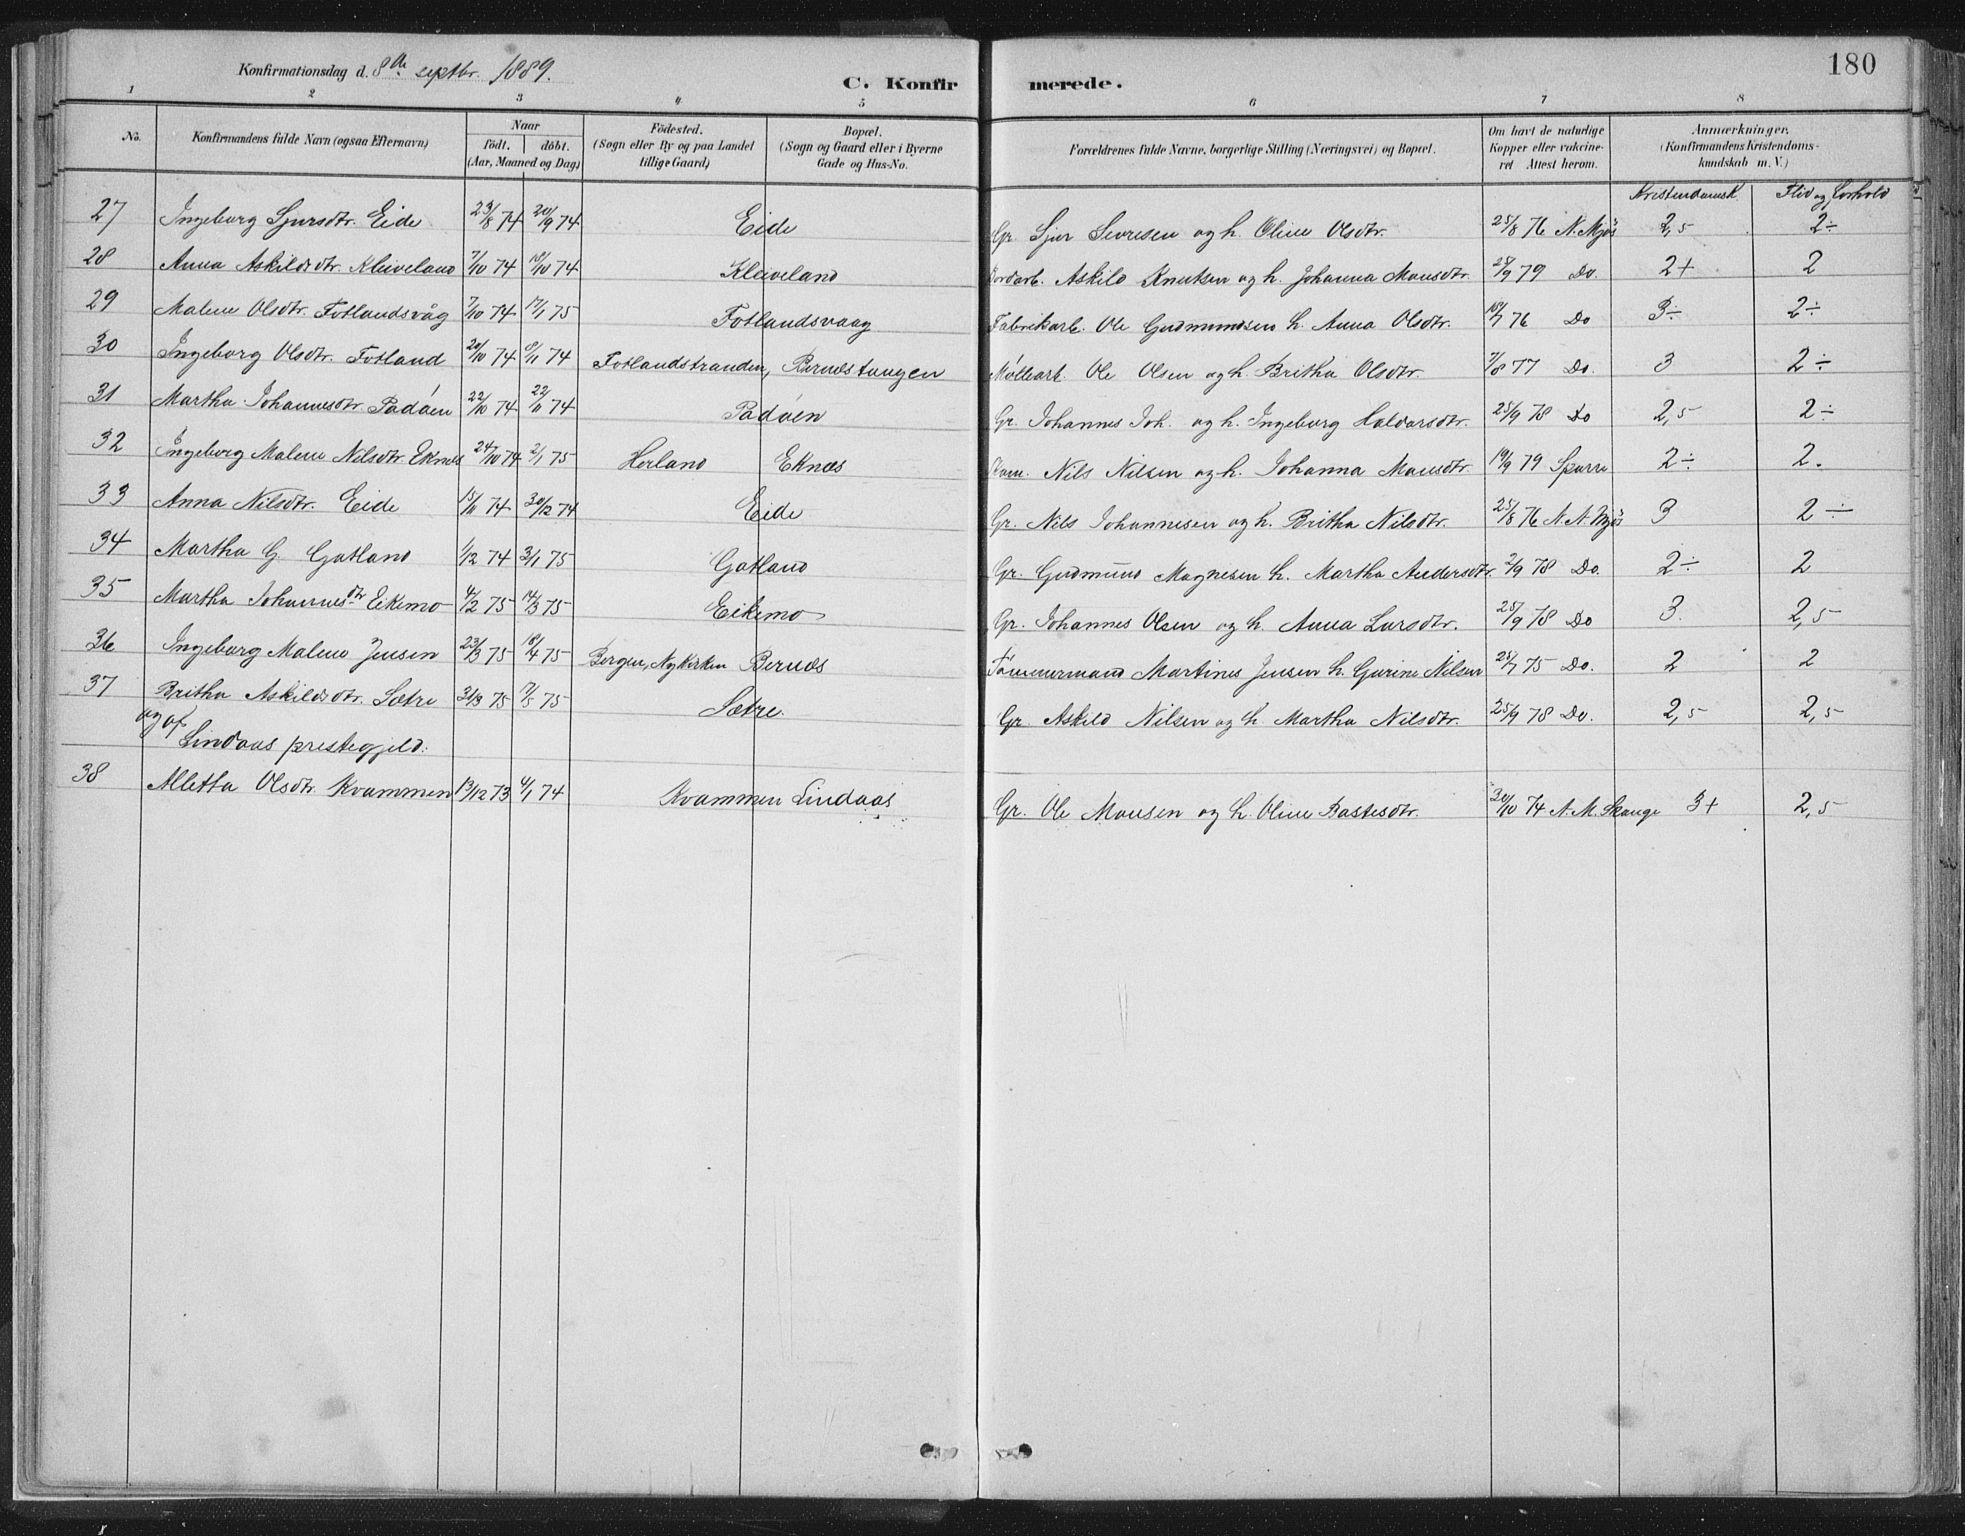 Konfirmationsdag d. 8de septbr. 1889.
C. Konfirmerede.
180
1 2 3 4 5 6 7 8
No.
Konfirmandens fulde Navn (ogsaa Efternavn)
Naar
födt. döbt.
(Aar, Maaned og Dag)
Födested.
(Sogn eller By og paa Landet
tillige Gaard)
Bopæl.
(Sogn og Gaard eller i Byerne
Gade og Hus-No.
Forældrenes fulde Navne, borgerlige Stilling (Næringsvei) og Bopæl.
Om havt de naturlige
Kopper eller vakcine-
ret Attest herom.
Anmærkninger.
(Konfirmandens Kristendoms-
kundskab m. V.)
Kristendomsk. Flid og Forhold
27 Ingeborg Sjursdtr. Eide 23/8 74 20/9 74 Eide Gr. Sjur Sivresen og h. Oline Olsdtr. 25/8 76 N. Mjös 2,5 2÷
28 Anna Askildsdtr. Kleiveland 7/10 74 18/10 74 Kleiveland Jordarb. Askild Knutsen og h. Johanna Monsdtr. 25/9 79 Do. 2+ 2
29 Malene Olsdtr. Fotlandsvåg 7/10 74 17/1 75 Fotlandsvaag Fabrikarb. Ole Gudmundsen h. Anna Olsdtr. 18/7 76 Do 3÷ 2÷
30 Ingeborg Olsdtr. Fotland 20/10 74 8/11 74 Fotlandstranden, Bernestangen Möllearb. Ole Olsen og h. Britha Olsdtr. 7/8 77 Do. 3 2÷
31 Martha Johannesdtr. Padöen 22/10 74 22/11 74 Padöen Gr. Johannes Joh. og h. Ingeborg Haldorsdtr. 25/9 78 Do 2,5 2÷
32 Ingeborg Malene Nilsdtr. Eknes 24/10 74 2/1 75 Herland Eknæs Nils Nilsen og h. Johanna Monsdtr. 19/9 79 Sparre 2÷ 2.
33 Anna Nilsdtr. Eide 15/11 74 30/12 74 Eide Gr. Nils Johannesen og h. Britha Nilsdtr. 25/8 76 N. N. Mjös 3 2÷
34 Martha G. Gotland 1/12 74 3/1 75 Gotland Gr. Gudmund Magnesen h. Martha Andersdtr. 2/9 78 Do. 2÷ 2
35 Martha Johannesdtr Eikemo 4/2 75 14/3 75 Eikemo Gr. Johannes Olsen og h. Anna Larsdtr. 25/9 78 Do 3. 2,5
36 Ingeborg Malene Jensen 23/3 75 18/4 75 Bergen, Nykirken Bernæs Tömmermand Martines Jensen h. Gurine Nilsen 25/7 75 Do. 2 2
37 Britha Askildsdtr. Sætre 31/3 75 7/5 75 Sætre. Gr Askild Nilsen og h. Martha Nilsdtr. 25/9 78 Do. 2,5 2,5
og af
Lindaas prestegjeld:
38 Alletta Olsdtr. Kvammen 13/12 73 4/1 74 Kvammen Lindaas Gr. Ole Monsen og h. Oline Bastesdtr. 30/10 74 A. M. Skauge 3+ 2,5